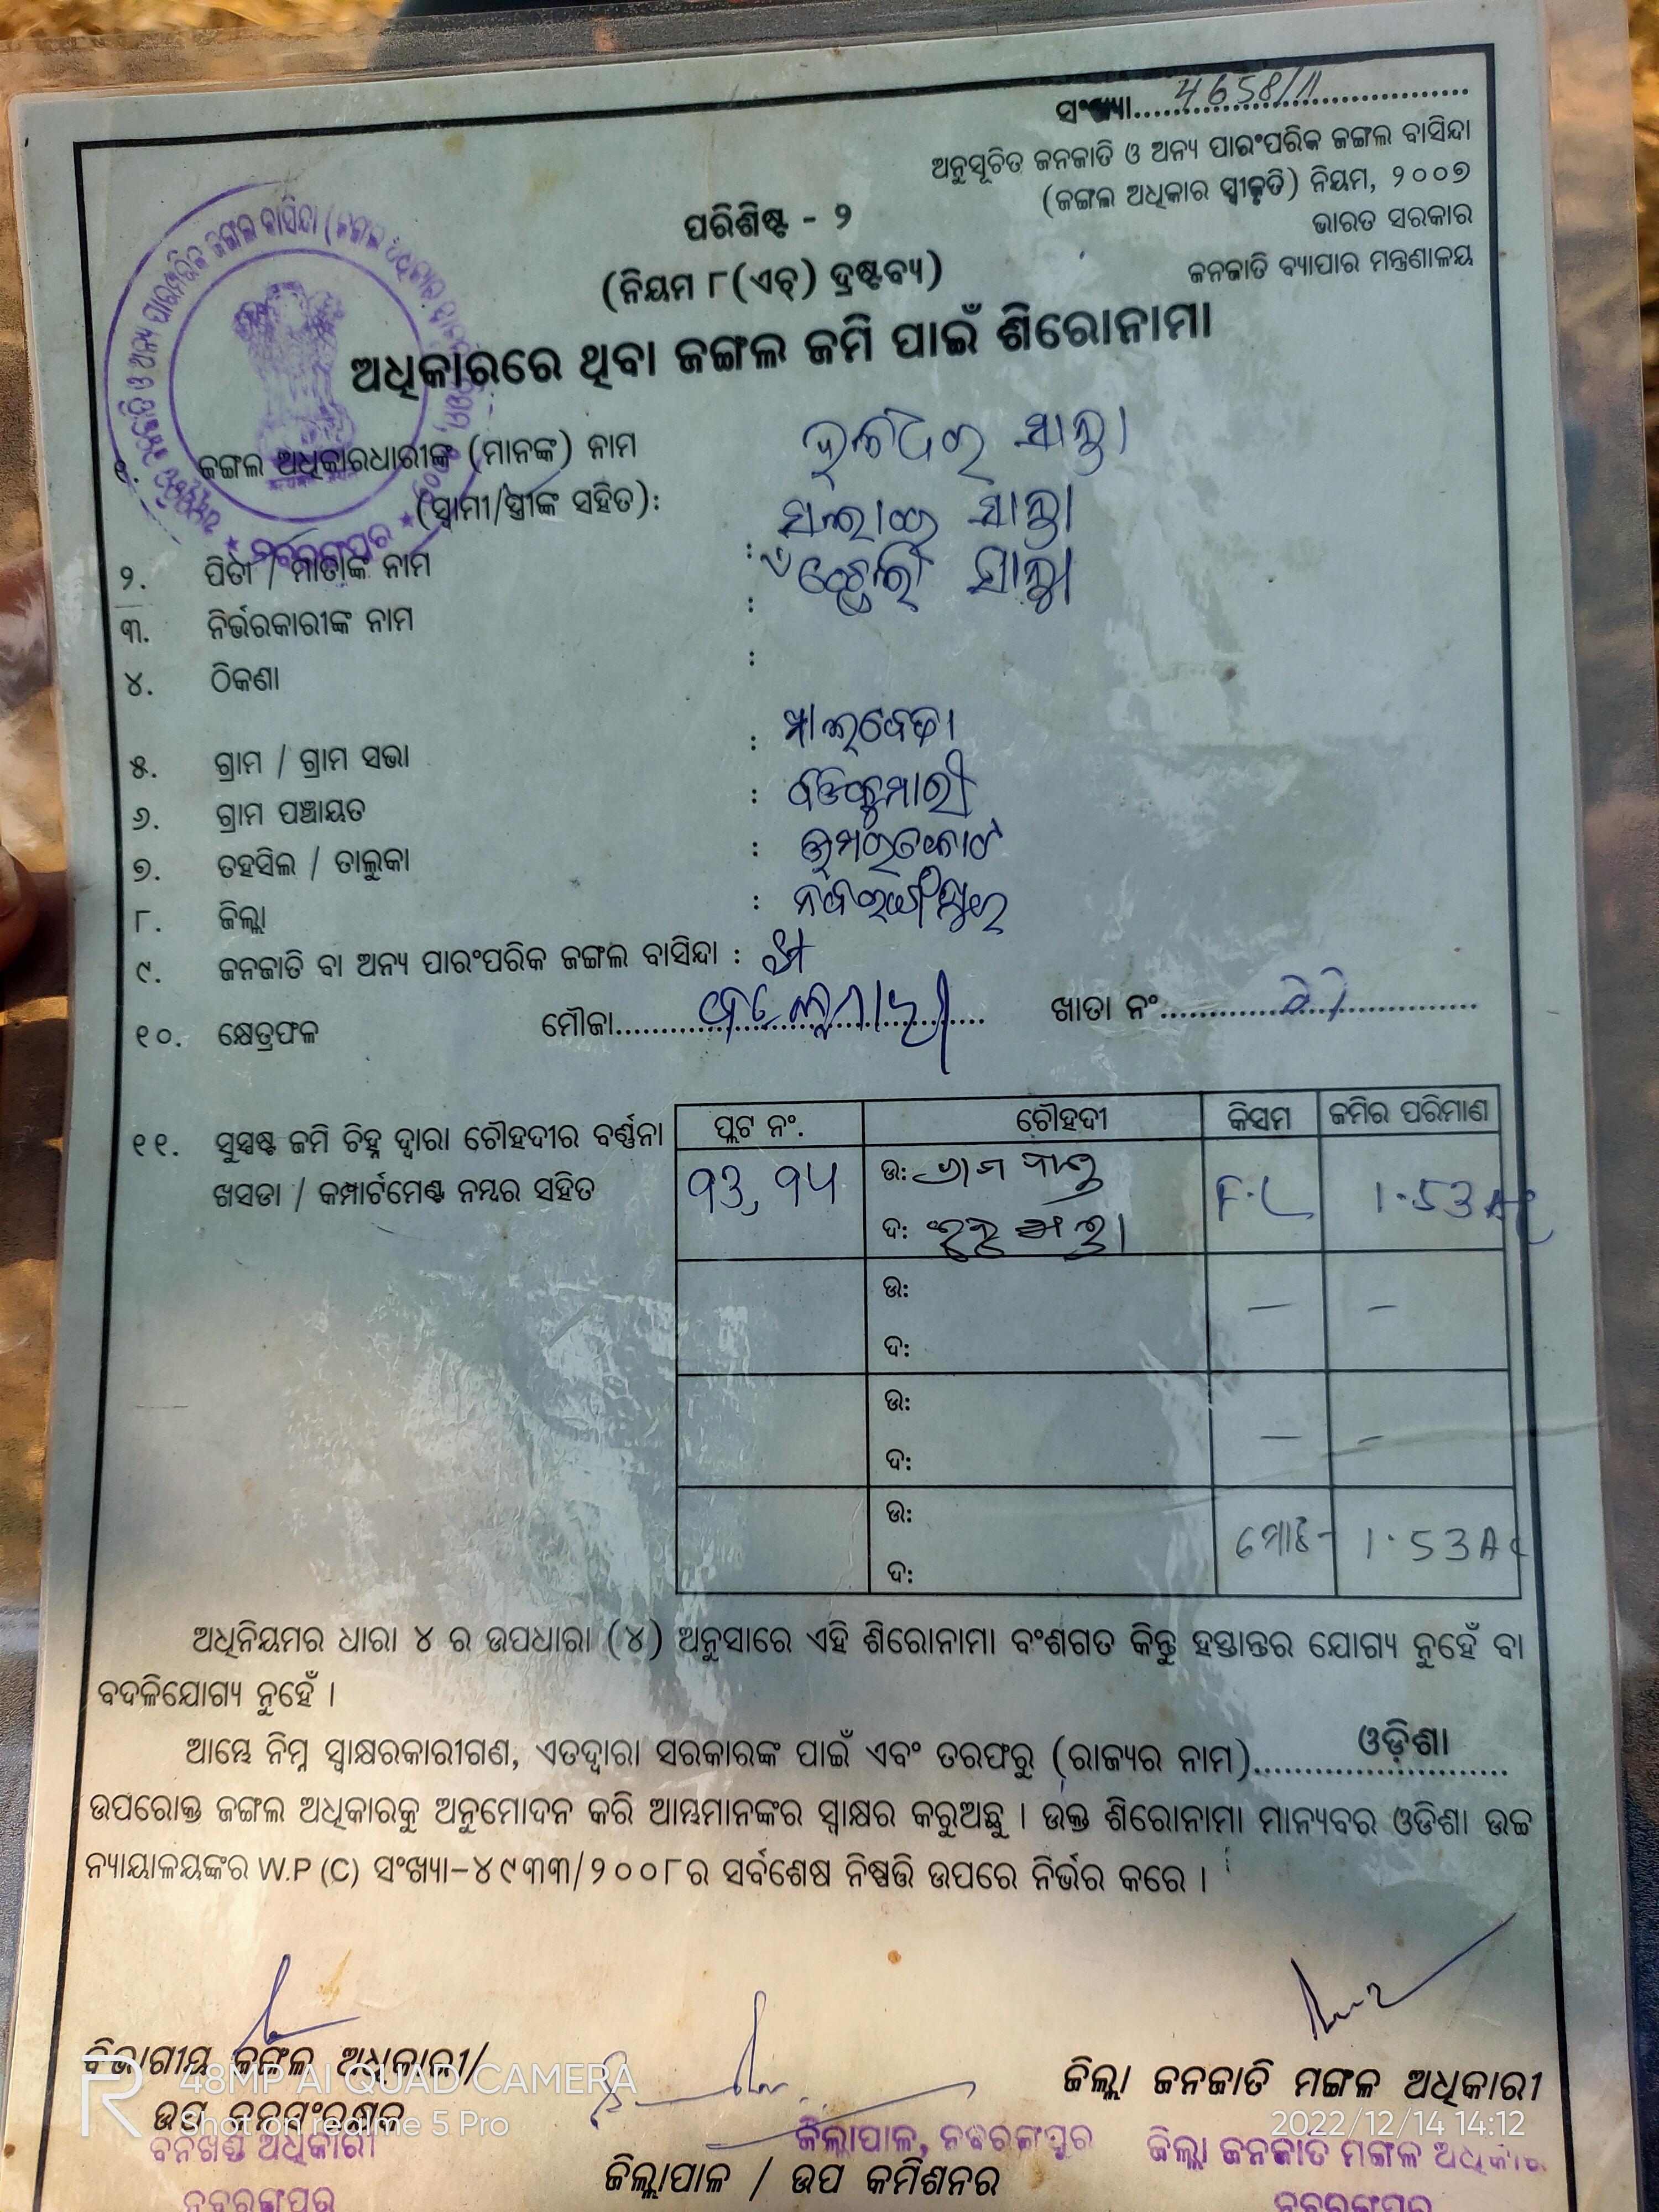 ସଂଖ୍ୟା.... 4658/11
ଅନୁସୂଚିତ ଜନଜାତି ଓ ଅନ୍ୟ ପାରଂପରିକ ଜଙ୍ଗଲ ବାସିନ୍ଦା
(ଜଙ୍ଗଲ ଅଧିକାର ସ୍ୱୀକୃତି) ନିୟମ, ୨୦୦୭
ଭାରତ ସରକାର
ଜନଜାତି ବ୍ୟାପାର ମନ୍ତ୍ରଣାଳୟ
ପରିଶିଷ୍ଟ - ୨
(ନିୟମ ୮(ଏଚ୍) ଦ୍ରଷ୍ଟବ୍ୟ)
ଅଧିକାରରେ ଥିବା ଜଙ୍ଗଲ ଜମି ପାଇଁ ଶିରୋନାମା
୧. ଜଙ୍ଗଲ ଅଧିକାରଧାରୀଙ୍କ (ମାନଙ୍କ) ନାମ
(ସ୍ୱାମୀ/ସ୍ତ୍ରୀଙ୍କ ସହିତ):
୨. ପିତା / ମାତାଙ୍କ ନାମ :
୩. ନିର୍ଭରକାରୀଙ୍କ ନାମ :
୪. ଠିକଣା :
୫. ଗ୍ରାମ / ଗ୍ରାମ ସଭା :
୬. ଗ୍ରାମ ପଞ୍ଚାୟତ : ବଡକୁମାରୀ
୭. ତହସିଲ / ତାଲୁକା : ଉମରକୋଟ
୮. ଜିଲ୍ଲା : ନବରଙ୍ଗପୁର
୯. ଜନଜାତି ବା ଅନ୍ୟ ପାରଂପରିକ ଜଙ୍ଗଲ ବାସିନ୍ଦା :
୧୦. କ୍ଷେତ୍ରଫଳ ମୌଜା.... ଖାତା ନଂ....
୧୧. ସୁସ୍ପଷ୍ଟ ଜମି ଚିହ୍ନ ଦ୍ୱାରା ଚୌହଦୀର ବର୍ଣ୍ଣନା
ଖସଡା / କମ୍ପାର୍ଟମେଣ୍ଟ ନମ୍ବର ସହିତ
ପ୍ଲଟ ନଂ. ଚୌହଦୀ କିସମ ଜମିର ପରିମାଣ
ଉ: F.L 1.53 Ac
ଦ:
ଉ: — —
ଦ:
ଉ: — —
ଦ:
ଉ: ମୋଟ- 1.53 Ac
ଦ:
ଅଧିନିୟମର ଧାରା ୪ ର ଉପଧାରା (୪) ଅନୁସାରେ ଏହି ଶିରୋନାମା ବଂଶଗତ କିନ୍ତୁ ହସ୍ତାନ୍ତର ଯୋଗ୍ୟ ନୁହେଁ ବା
ବଦଳିଯୋଗ୍ୟ ନୁହେଁ ।
ଆମ୍ଭେ ନିମ୍ନ ସ୍ୱାକ୍ଷରକାରୀଗଣ, ଏତଦ୍ୱାରା ସରକାରଙ୍କ ପାଇଁ ଏବଂ ତରଫରୁ (ରାଜ୍ୟର ନାମ).... ଓଡ଼ିଶା
ଉପରୋକ୍ତ ଜଙ୍ଗଲ ଅଧିକାରକୁ ଅନୁମୋଦନ କରି ଆମ୍ଭମାନଙ୍କର ସ୍ୱାକ୍ଷର କରୁଅଛୁ । ଉକ୍ତ ଶିରୋନାମା ମାନ୍ୟବର ଓଡିଶା ଉଚ୍ଚ
ନ୍ୟାୟାଳୟଙ୍କର W.P (C) ସଂଖ୍ୟା-୪୯୩୩/୨୦୦୮ର ସର୍ବଶେଷ ନିଷ୍ପତ୍ତି ଉପରେ ନିର୍ଭର କରେ ।
ବିଭାଗୀୟ ଜଙ୍ଗଲ ଅଧିକାରୀ/
ଉପ ବନସଂରକ୍ଷକ
ବନଖଣ୍ଡ ଅଧିକାରୀ
ନବରଙ୍ଗପୁର
ଜିଲ୍ଲାପାଳ, ନବରଙ୍ଗପୁର
ଜିଲ୍ଲାପାଳ / ଉପ କମିଶନର
ଜିଲ୍ଲା ଜନଜାତି ମଙ୍ଗଳ ଅଧିକାରୀ
ଜିଲ୍ଲା ଜନଜାତି ମଙ୍ଗଳ ଅଧିକାରୀ
ନବରଙ୍ଗପୁର
48MP AI QUAD CAMERA
Shot on realme 5 Pro
2022/12/14 14:12